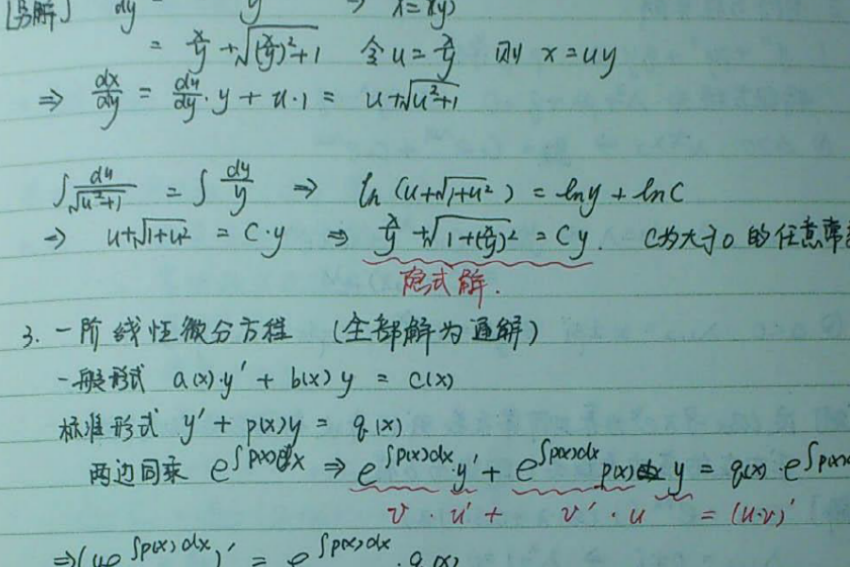 [另解] dy y ⇒ x=x(y)
= x/y + √((x/y)²+1) 令 u = x/y 则 x = uy
⇒ dx/dy = du/dy · y + u·1 = u+√(u²+1)
∫ du/√(u²+1) = ∫ dy/y ⇒ ln (u+√(1+u²)) = lny + lnC
⇒ u+√(1+u²) = C·y ⇒ x/y + √(1+(x/y)²) = Cy. C为大于0的任意常
隐式解.
3. 一阶线性微分方程 (全部解为通解)
一般形式 a(x)·y' + b(x) y = c(x)
标准形式 y' + p(x)y = q(x)
两边同乘 e^∫p(x)dx ⇒ e^∫p(x)dx · y' + e^∫p(x)dx p(x) y = q(x) · e^∫p(x)
v u' + v' · u = (u·v)'
⇒ (ye^∫p(x)dx)' = e^∫p(x)dx · q(x)